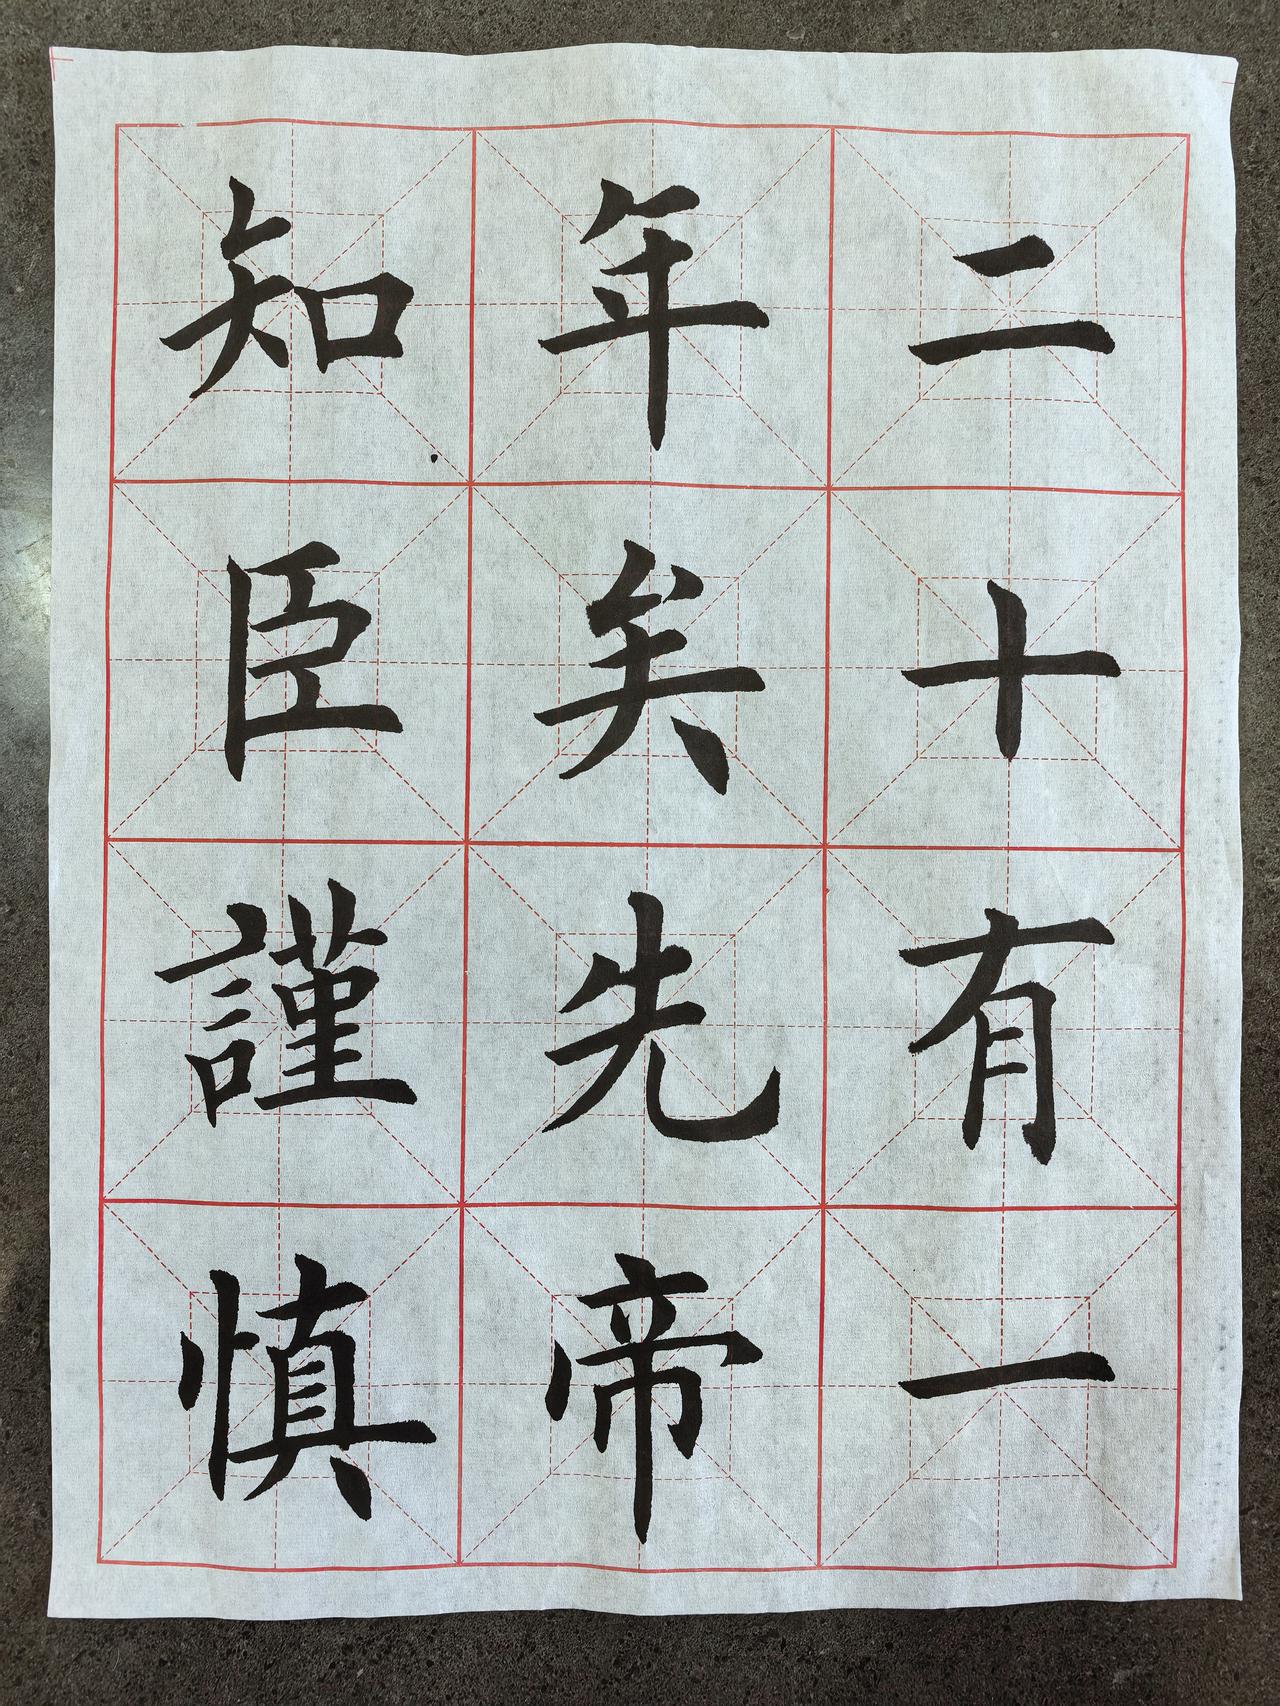 二十有一
年矣先帝
知臣謹慎